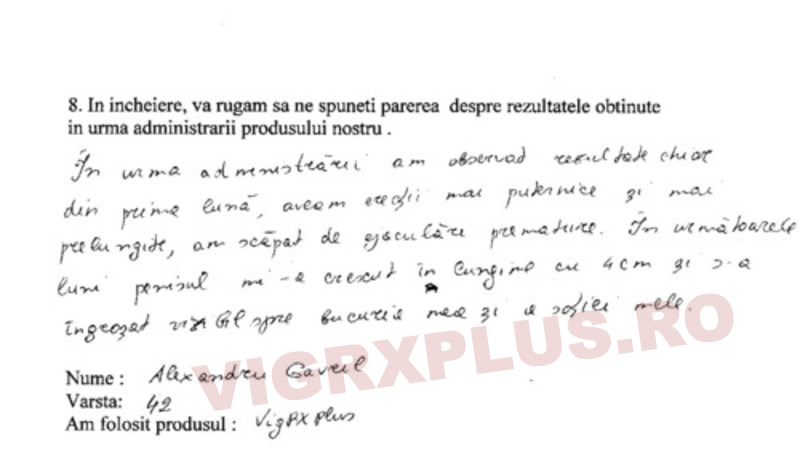 8. In incheiere, va rugam sa ne spuneti parerea despre rezultatele obtinute
in urma administrarii produsului nostru .
În urma administrării am observat rezultate chiar
din prima lună, aveam erecții mai puternice și mai
prelungite, am scăpat de ejaculări premature. În următoarele
luni penisul mi-a crescut în lungime cu 4cm și s-a
îngroșat vizibil spre bucuria mea și a soției mele.
VIGRXPLUS.RO
Nume : Alexandru Gavril
Varsta: 42
Am folosit produsul : VigRX Plus